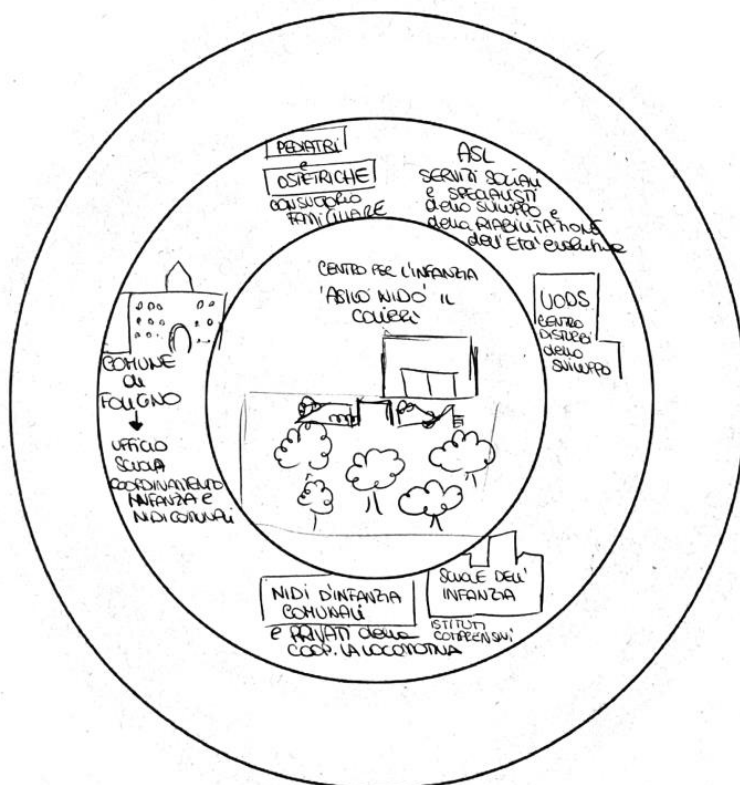 PEDIATRI
e
OSTETRICHE
CONSULTORIO
FAMILIARE
ASL
SERVIZI SOCIALI
e SPECIALISTI
dello SVILUPPO e
della RIABILITAZIONE
dell'ETA' evolutiva
CENTRO PER L'INFANZIA
'ASILO NIDO' IL
COLIBRÌ
UODS
CENTRO
DISTURBI
dello
SVILUPPO
COMUNE
di
FOLIGNO
UFFICIO
SCUOLA
COORDINAMENTO
INFANZIA e
NIDI COMUNALI
NIDI D'INFANZIA
COMUNALI
e PRIVATI della
COOP. LA LOCOMOTIVA
SCUOLE DELL'
INFANZIA
ISTITUTI
COMPRENSIVI